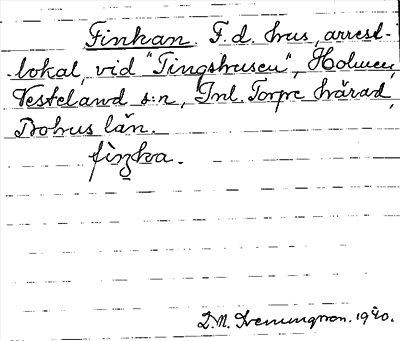 Finkan. F. d. hus, arrest-
lokal, vid "Tingshusen", Holmen,
Vesteland s:n, Inl. Torpe härad,
Bohus län.
fiŋka.
1940.